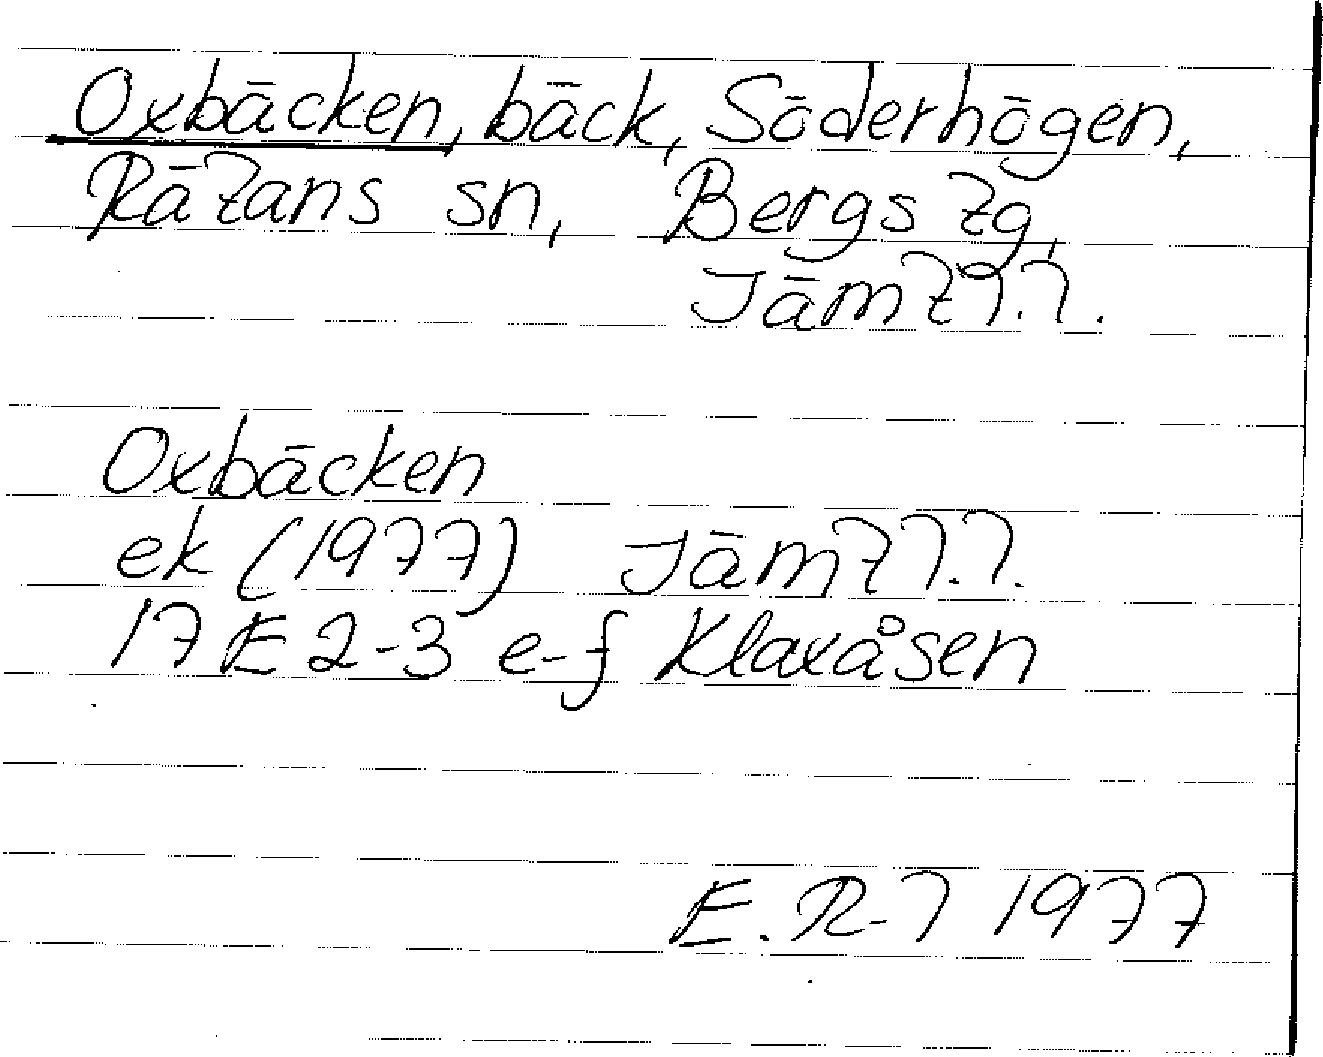 Oxbäcken, bäck, Söderhögen,
Rätans sn, Bergs tg,
Jämtl.l.
Oxbäcken
ek (1977) Jämtl.l.
17 E 2-3 e-f Klaxåsen
E. R-l 1977